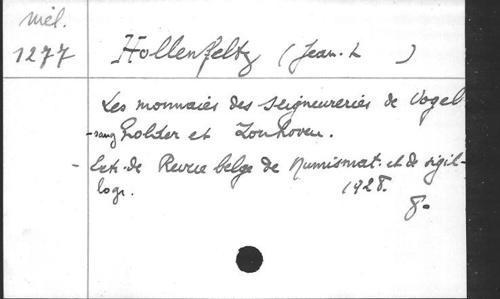 Mél.
1277
Hollenfeltz (Jean-L )
Les monnaies des seigneureries de Vogel-
-sang Zolder et Zonhoven.
- Extr. de Revue belge de Numismat. et de sigil-
logr. 1928.
8°